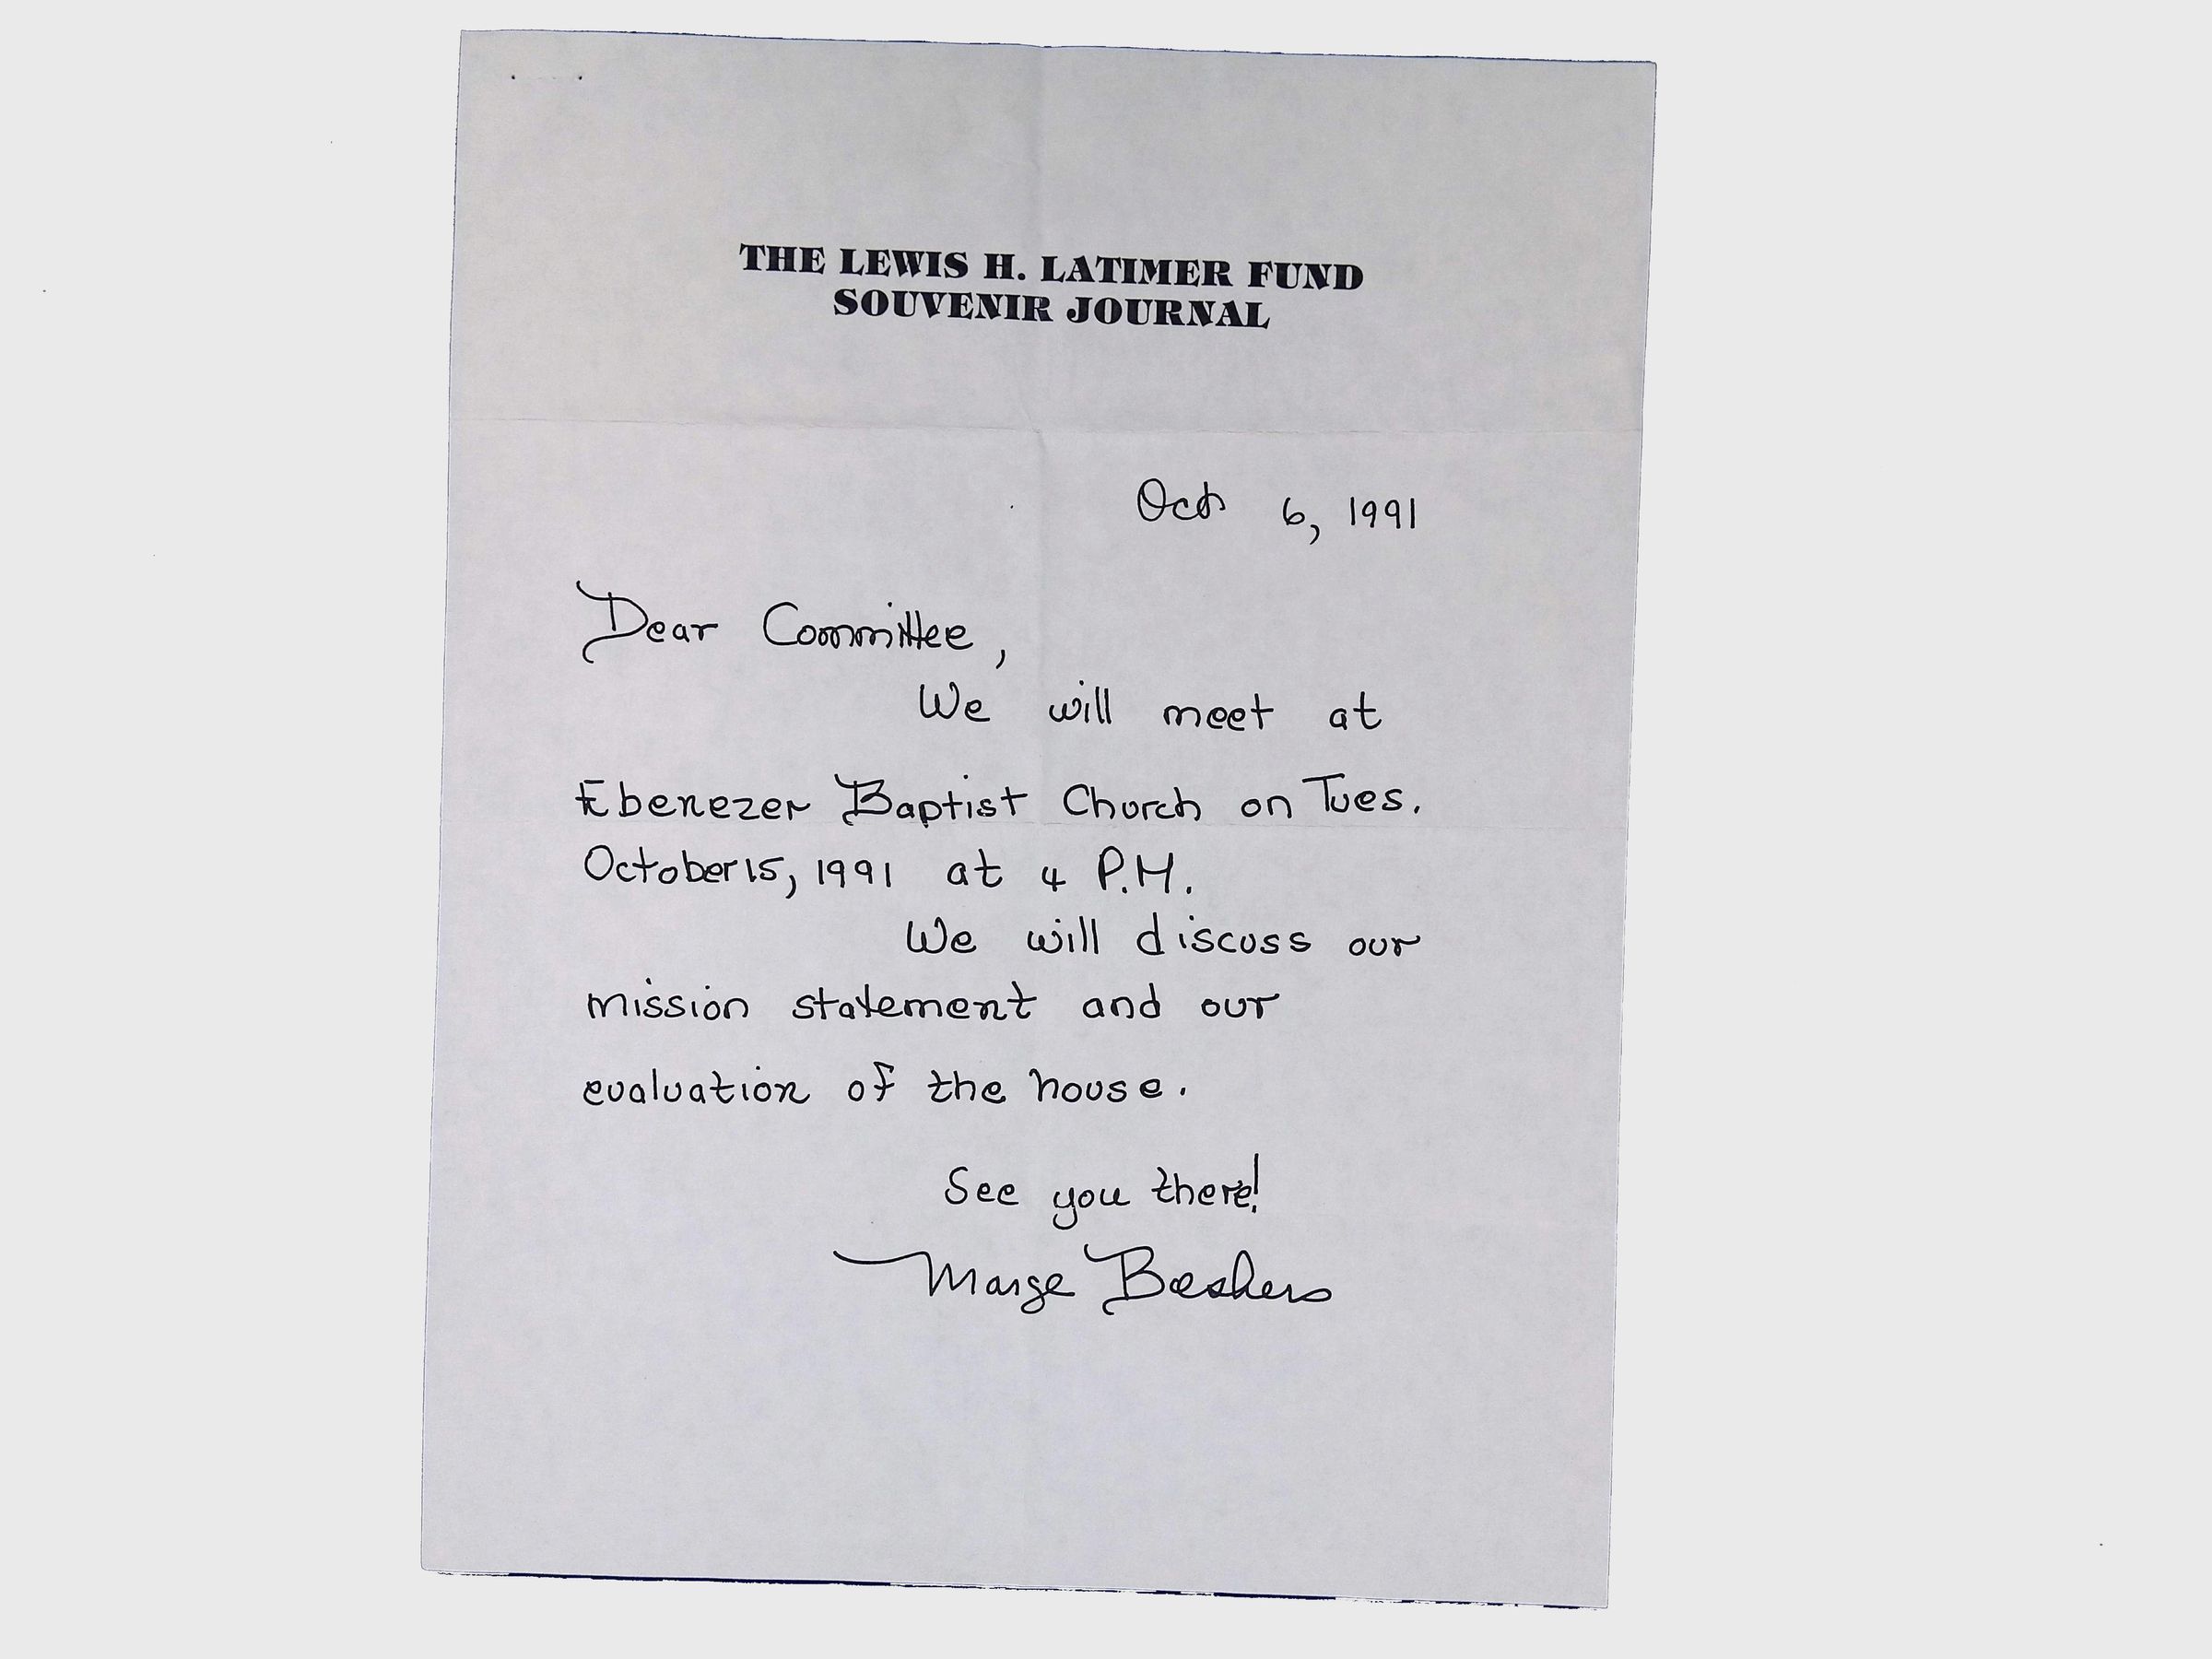 THE LEWIS H. LATIMER FUND
SOUVENIR JOURNAL
Oct 6, 1991
Dear Committee,
We will meet at
Ebenezer Baptist Church on Tues.
October 15, 1991 at 4 P.M.
We will discuss our
mission statement and our
evaluation of the house.
See you there!
Marge Beshers